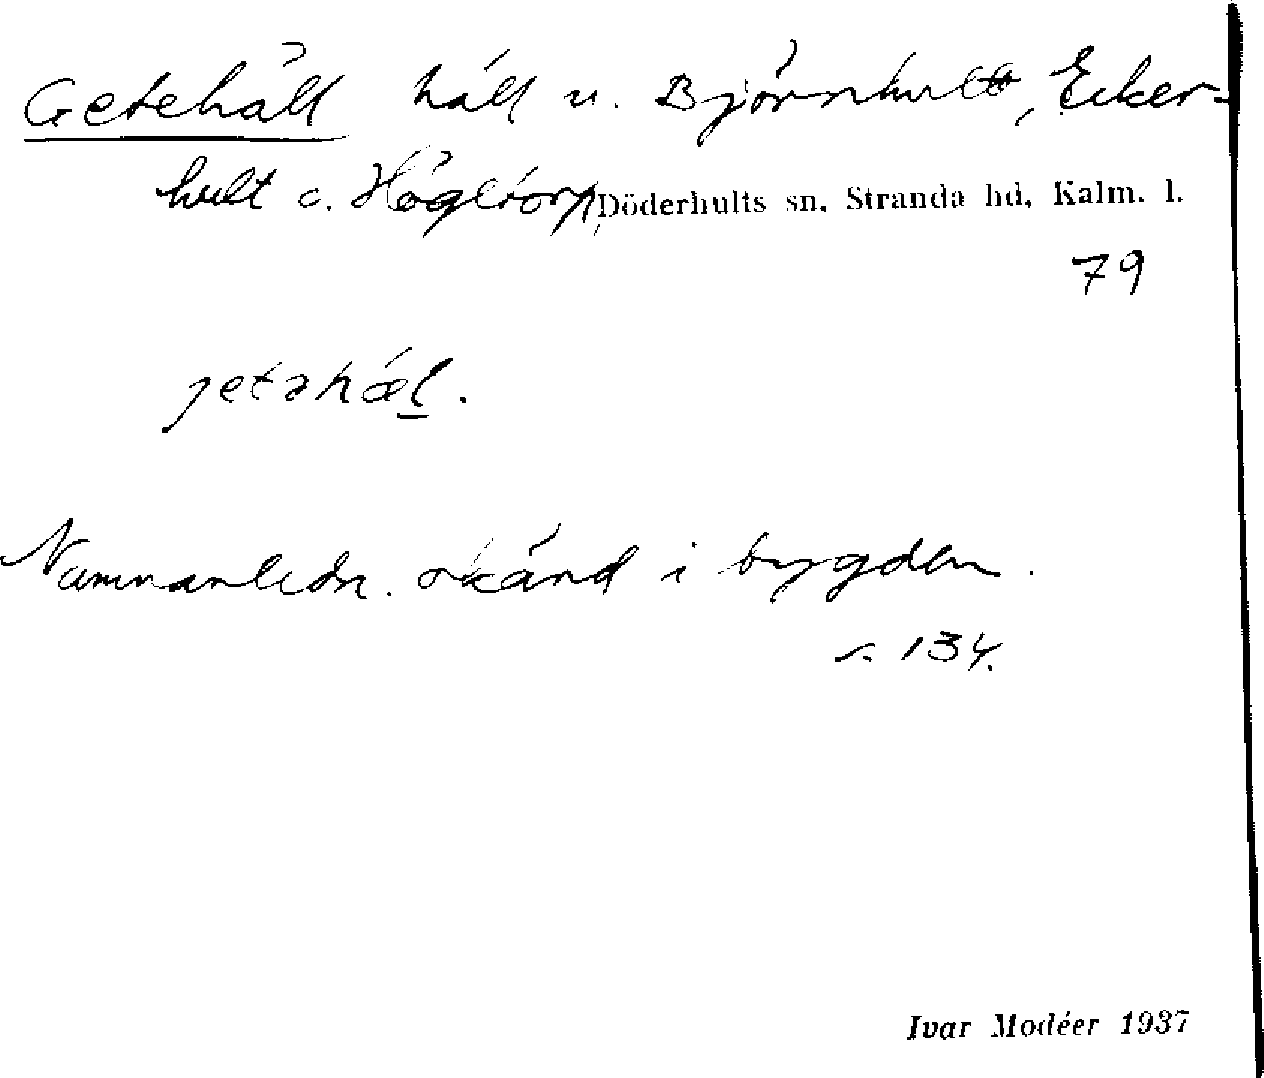 Getehäll häll u. Björnhult, Eker-
hult o. Högetorp, Döderhults sn. Stranda hd, Kalm. l.
79
jetahæl.
Namnanledn. okänd i bygden.
s. 134.
Ivar Modéer 1937